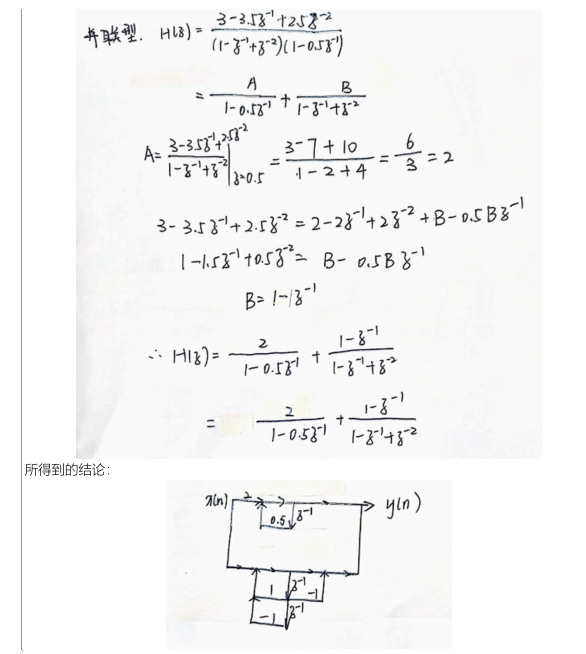 并联型. H(z) = (3-3.5z⁻¹+2.5z⁻²)/((1-z⁻¹+z⁻²)(1-0.5z⁻¹))
= A/(1-0.5z⁻¹) + B/(1-z⁻¹+z⁻²)
A = (3-3.5z⁻¹+2.5z⁻²)/(1-z⁻¹+z⁻²)|z=0.5 = (3-7+10)/(1-2+4) = 6/3 = 2
3-3.5z⁻¹+2.5z⁻² = 2-2z⁻¹+2z⁻²+B-0.5Bz⁻¹
1-1.5z⁻¹+0.5z⁻² = B-0.5Bz⁻¹
B = 1-1z⁻¹
∴ H(z) = 2/(1-0.5z⁻¹) + (1-z⁻¹)/(1-z⁻¹+z⁻²)
= 2/(1-0.5z⁻¹) + (1-z⁻¹)/(1-z⁻¹+z⁻²)
所得到的结论：
x(n) 2 y(n)
0.5 z⁻¹
1 z⁻¹ -1
-1 z⁻¹